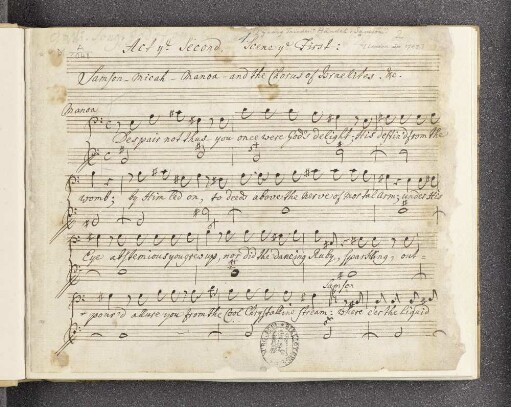 Act yᵉ Second. Scene yᵉ First:
Samson - Micah - Manoa - and the Chorus of Israelites &c.
Manoa
Despair not thus, you once were God's delight, His destin'd from the
womb; by Him led on, to deeds above the nerve of mortal arm; under His
Eye abstemious you grew up, nor did the dancing Ruby, sparkling, out=
=pour'd allure you from the Cool Crystalline stream:
Samson
Where e'er the liquid